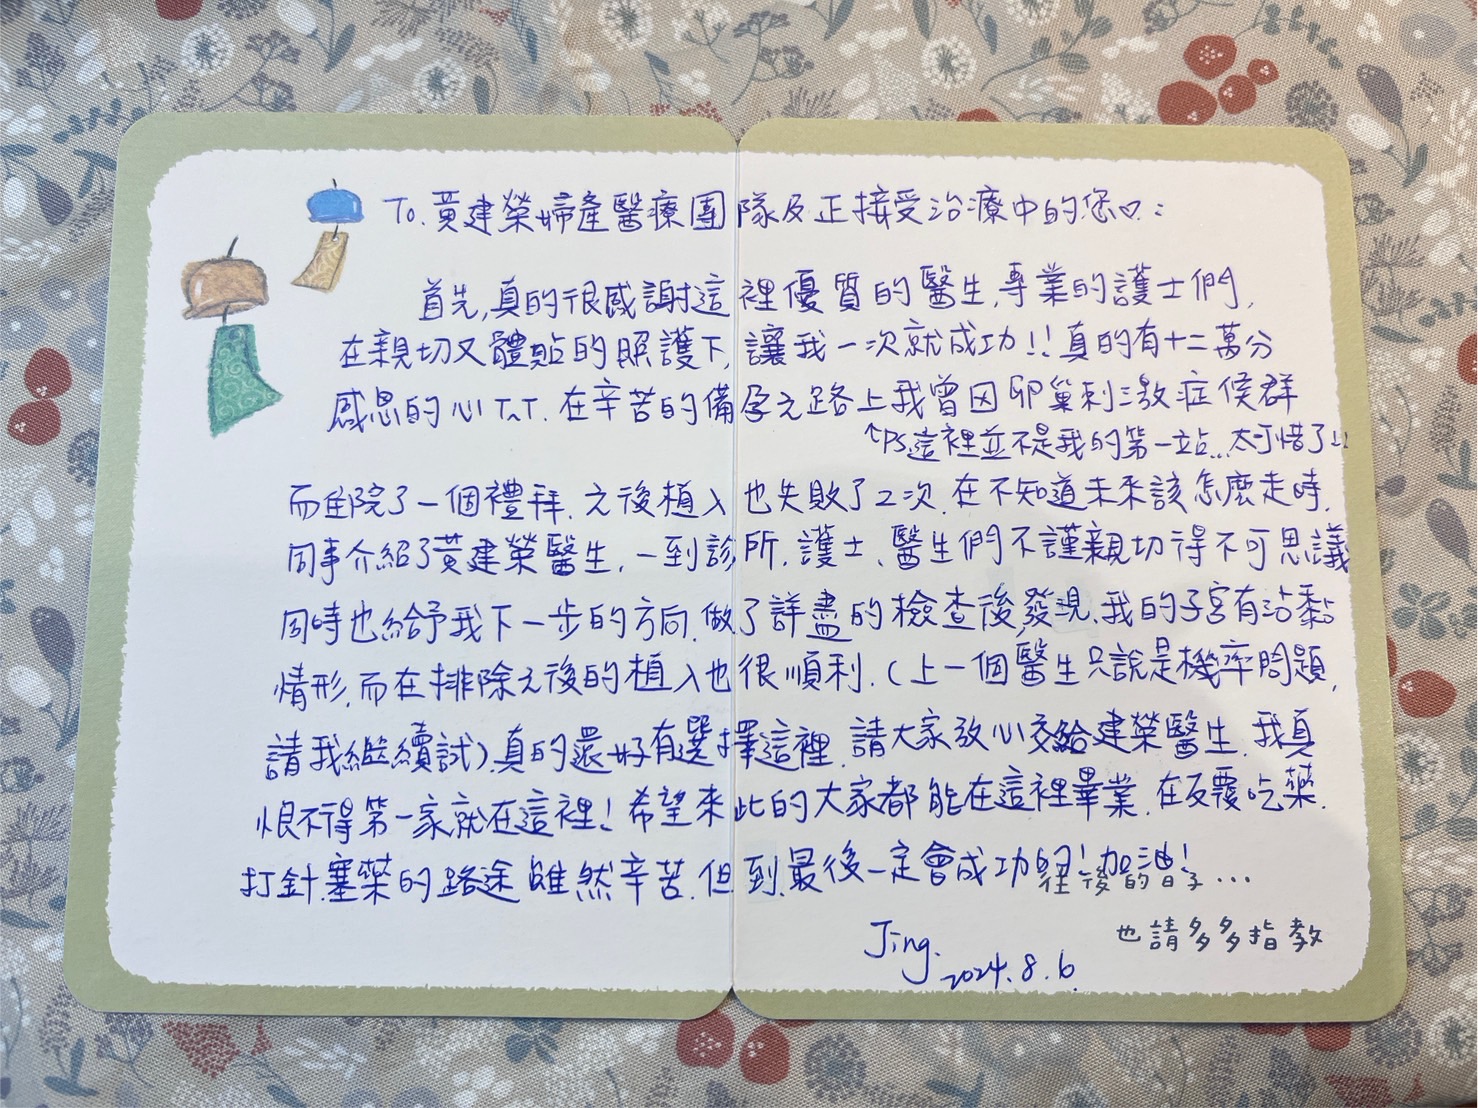 To. 黃建榮婦產醫療團隊及正接受治療中的您♡：
首先,真的很感謝這裡優質的醫生,專業的護士們,
在親切又體貼的照護下,讓我一次就成功!!真的有十二萬分
感恩的心TnT.在辛苦的備孕之路上我曾因卵巢刺激症候群
↑PS.這裡並不是我的第一站...太可惜了!!
而住院了一個禮拜.之後植入也失敗了2次.在不知道未來該怎麼走時,
同事介紹了黃建榮醫生,一到診所,護士、醫生們不謹親切得不可思議
同時也給予我下一步的方向.做了詳盡的檢查後,發現,我的子宮有沾黏
情形,而在排除之後的植入也很順利.(上一個醫生只說是機率問題,
請我繼續試),真的還好有選擇這裡.請大家放心交給建榮醫生.我真
恨不得第一家就在這裡!希望來此的大家都能在這裡畢業.在反覆吃藥.
打針.塞藥的路途雖然辛苦.但到最後一定會成功!加油!
往後的日子...
也請多多指教
Jing.
2024.8.6.